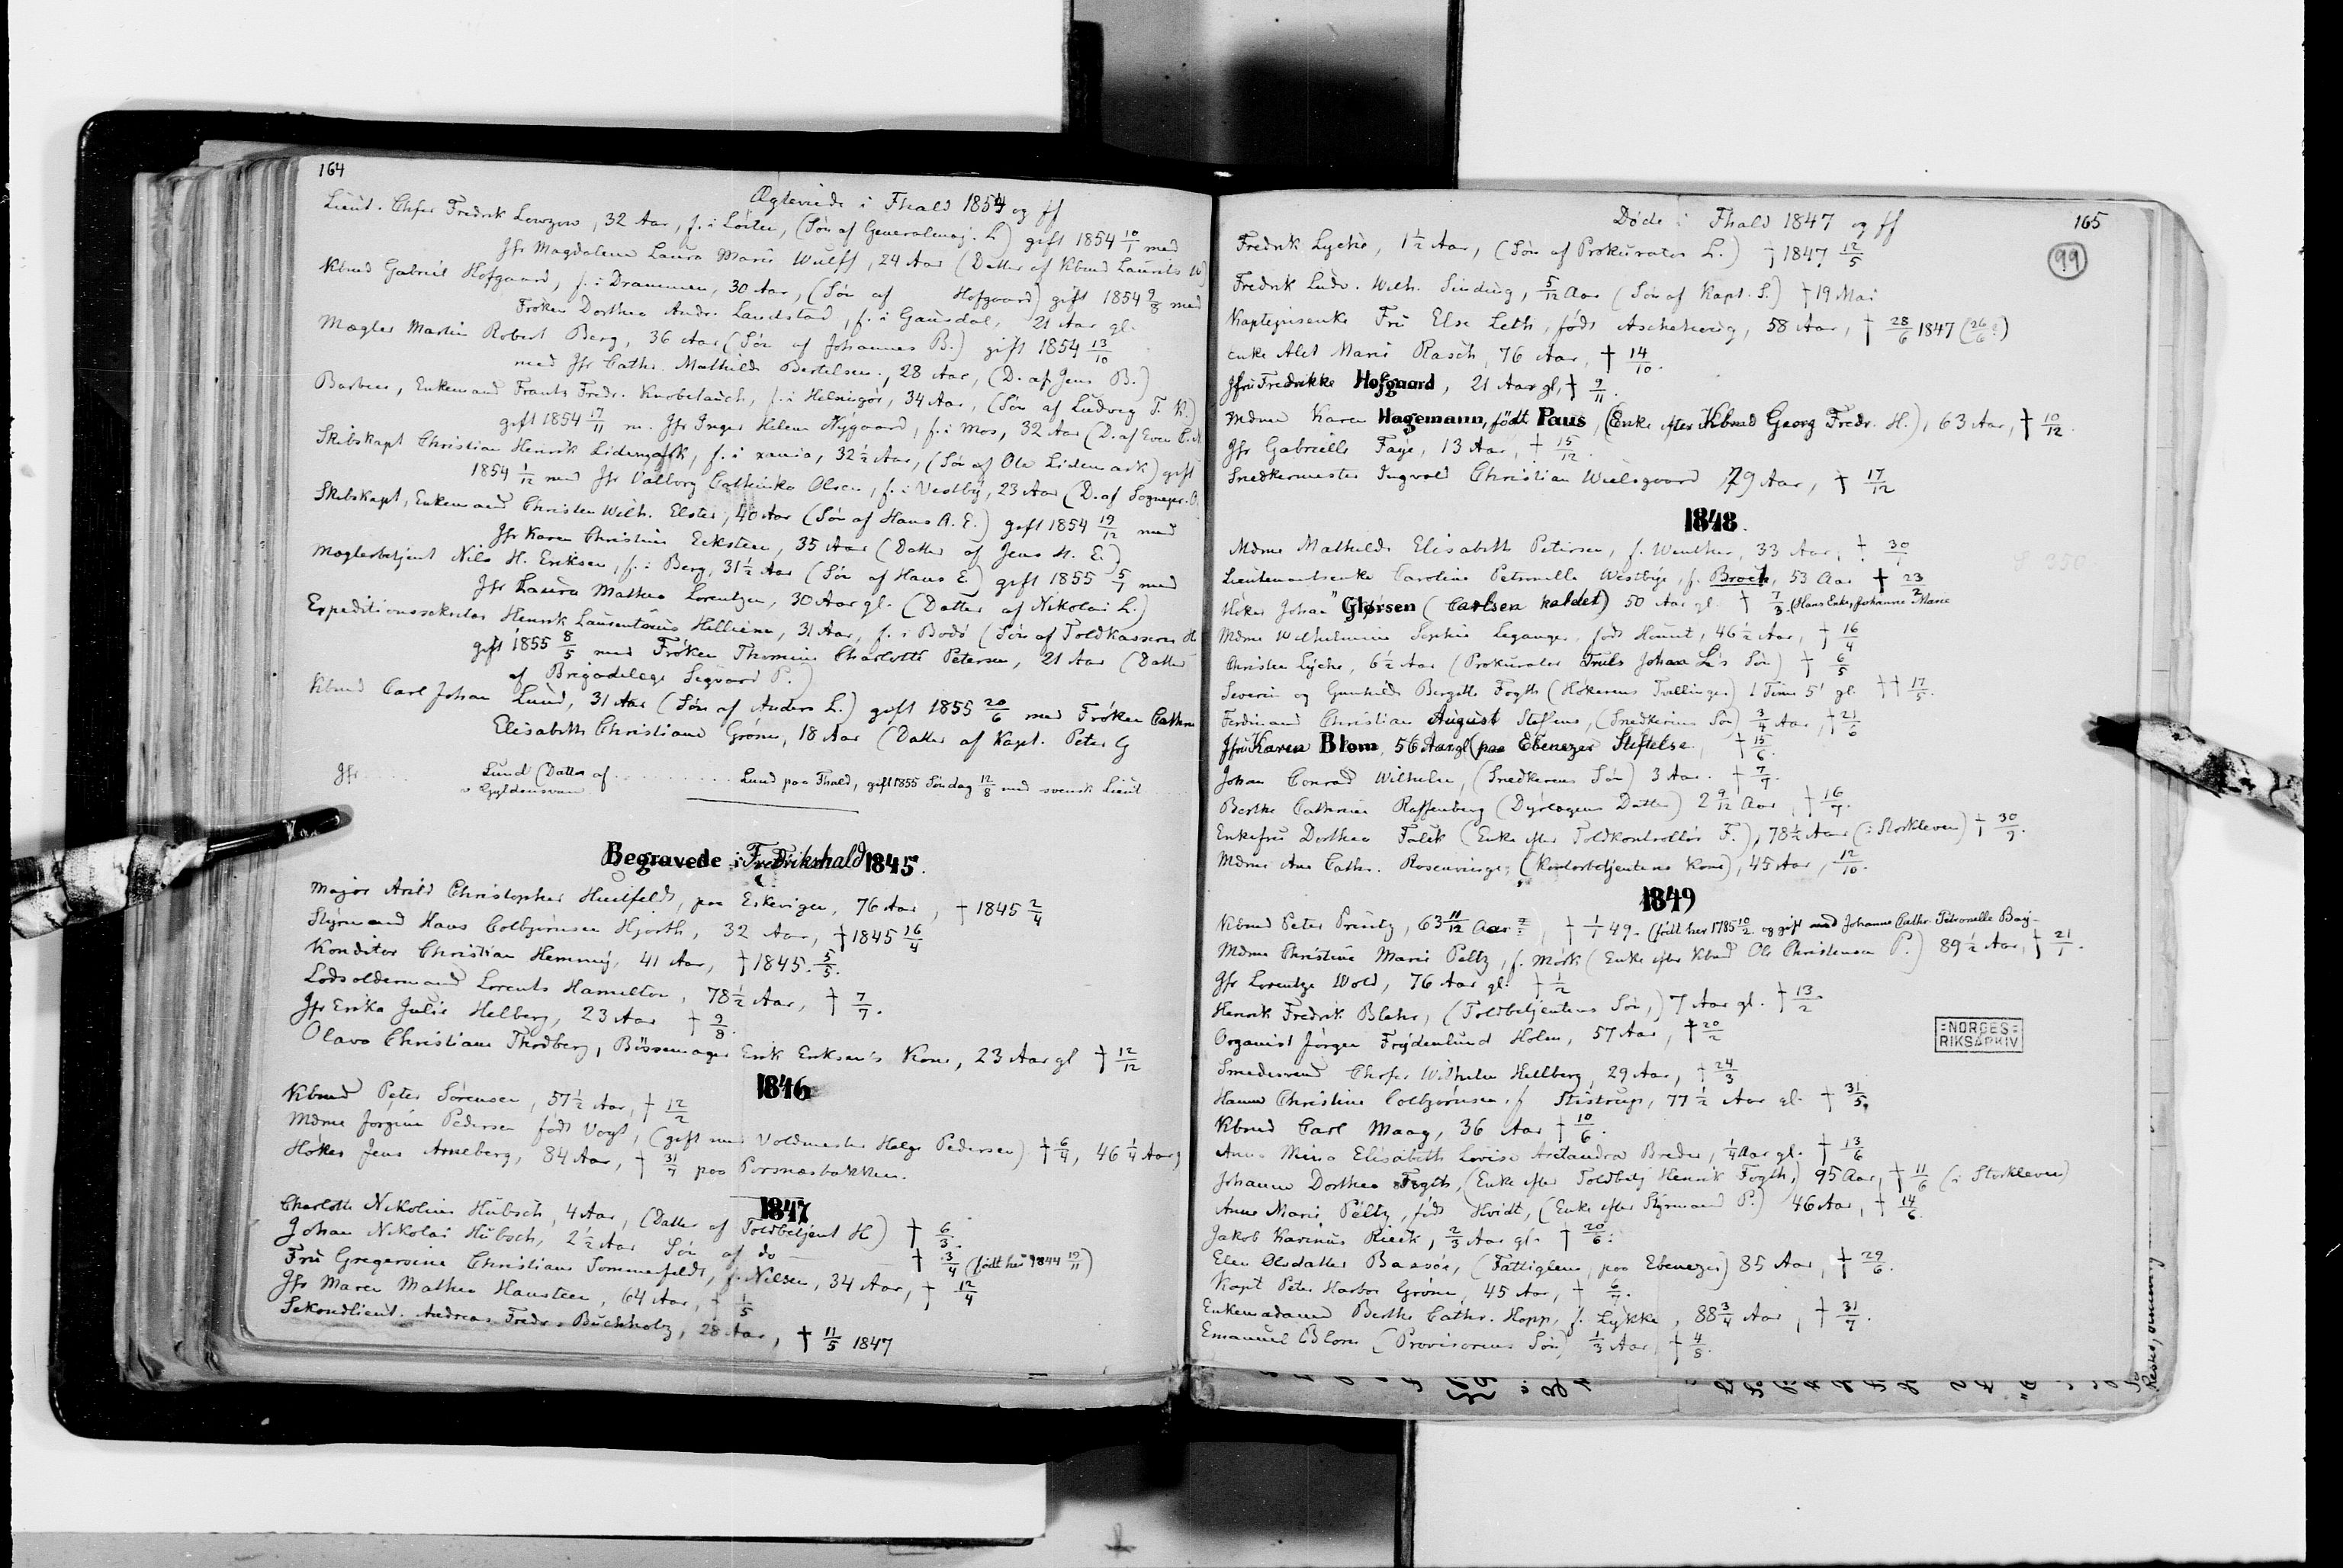 164
Ægteviede i Fhald 1854 og ff
Lieut. Chfer Fredrik Lowzow, 32 Aar, f. i Löiten, (Sön af Generalmaj. L) gift 1854 10/1 med
Jfr Magdalena Laura Marie Wulff, 24 Aar (Datter af Kbmd Laurits W)
Kbmd Gabriel Hofgaard, f. i Drammen, 30 Aar, (Sön af Hofgaard) gift 1854 9/8 med
Fröken Dorthea Andr. Landstad, f. i Gausdal, 21 Aar gl.
Mægler Martin Robert Berg, 36 Aar (Sön af Johannes B.) gift 1854 13/10
med Jfr Cathr. Mathilde Bertelsen, 28 Aar, (D. af Jens B.)
Barbeer, Enkemand Frantz Fredr. Knobelauch, f. i Helsingör, 34 Aar, (Sön af Ludvig T. K.)
gift 1854 17/11 m. Jfr Inger Helene Nygaard, f. i Mos, 32 Aar (D. af Even
Skibskapt Christian Henrik Lidemark, f. i xania, 32 1/2 Aar, (Sön af Ole Lidemark) gift
1854 1/12 med Jfr Valborg Cathinka Olsen, f. i Vestby, 23 Aar (D. af Sognepr. O.
Skibskapt, Enkemand Christen Wilh. Elster, 40 Aar (Sön af Hans A. E.) gift 1854 19/12 med
Jfr Karen Christine Ecksteen, 35 Aar (Datter af Jens H. E.)
Mæglerbetjent Nils H. Eriksen, f. i Berg, 31 1/2 Aar (Sön af Hans E.) gift 1855 5/7 med
Jfr Laura Mathea Lorentzen, 30 Aar gl. (Datter af Nikolai L.)
Expeditionssekretær Henrik Laurentzius Hilliene, 31 Aar, f. i Bodö (Sön af Toldkasserer H
gift 1855 8/5 med Fröken Thomine Charlotte Petersen, 21 Aar (Datter
af Brigadelæge Sigvard P.)
Kbmd Carl Johan Lund, 31 Aar (Sön af Anders L.) gift 1855 20/6 med Fröken Cathr
Elisabeth Christiane Gröner, 18 Aar (Datter af Kapt. Peter G
Jfr Lund (Datter af Lund paa Fhald, gift 1855 Söndag 12/8 med svensk Lieut
v Gyldensvan
Begravede i Fredrikshald 1845.
Major Arild Christopher Huitfeldt, paa Eskevigen, 76 Aar, † 1845 2/4
Styrmand Hans Colbjörnsen Hjorth, 32 Aar, † 1845 16/4
Konditor Christian Hemmig, 41 Aar, † 1845. 5/5.
Lodsoldermand Lorents Hamilton, 78 1/2 Aar, † 7/7.
Jfr Erika Julie Helberg, 23 Aar † 9/9.
Olava Christiane Thodberg, Bössemager Erik Eriksen's Kone, 23 Aar gl † 12/12
1846
Kbmd Peter Sörensen, 57 1/2 Aar, † 12/2
Mdme Jörgine Pedersen födt Vogt, (gift med Voldmester Helge Pedersen) † 6/4, 46 1/4 Aar
Höker Jens Arneberg, 84 Aar, † 31/7 paa Porsnæsbakken.
1847
Charlotte Nikoline Hübsch, 4 Aar, (Datter af Toldbetjent H) † 6/3.
Johan Nikolai Hübsch, 2 1/2 Aar Sön af do † 3/4 (födt her 1844 19/11)
Fru Gregersine Christiane Sommerfeldt, f. Nilsen, 34 Aar, † 12/4
Jfr Maren Mathea Hansteen, 64 Aar, † 1/5
Sekondlieut. Andreas Fredr. Buchholtz, 28 Aar, † 11/5 1847
Døde i Fhald 1847 og ff
165
99
Fredrik Lyche, 1 1/2 Aar, (Sön af Prokurator L.) † 1847 12/5
Fredrik Ludv. Wilh. Sinding, 5/12 Aar (Sön af Kapt. S.) † 19 Mai
Kapteinsenke Fru Else Leth, födt Aschehoug, 58 Aar, † 28/6 1847 (26/6?)
Enke Alet Marie Rasch, 76 Aar, † 14/10.
Jfru Fredrikke Hofgaard, 21 Aar gl, † 9/11.
Mdme Karen Hagemann, født Paus, (Enke efter Kbmd Georg Fredr. H.), 63 Aar, † 10/12.
Jfr Gabrielle Faye, 13 Aar, † 15/12.
Snedkermester Ingvald Christian Wielsgaard 79 Aar, † 17/12
1848.
Mdme Mathilde Elisabeth Petersen, f. Winther, 33 Aar, † 30/1
Lieutenantsenke Caroline Petronelle Westbye, f. Broch, 53 Aar † 23/2
Höker Johan Glørsen (Carlsen kaldet) 50 Aar gl. † 7/3. (Hans Enke, Johanne Marie
Mdme Wilhelmine Sophie Leganger, födt Hount, 46 1/2 Aar, † 16/4
Christen Lyche, 6 1/2 Aar (Prokurator Truls Johan L's Sön) † 6/5
Severin og Gunhilde Bergitte Fogth (Hökerens Tvillinger) 1 Time 5' gl. †† 17/5.
Ferdinand Christian August Steffens, (Snedkerens Sön) 3/4 Aar, † 21/6
Jfru Karen Blom, 56 Aar gl (paa Ebenezer Stiftelse, † 15/6.
Johan Conrad Wilhelm, (Snedkerens Sön) 3 Aar. † 7/7.
Berthe Cathrine Raffenberg (Dyrlægens Datter) 2 9/12 Aar, † 16/7.
Enkefru Dorthea Falck (Enke efter Toldkontrollör F.), 78 1/2 Aar (i Storkleven) † 30/9.
Mdme Ane Cathr. Rosenvinge, (Kontorbetjentens Kone), 45 Aar, 12/10.
1849
Kbmd Peter Prentz, 63 11/12 Aar, † 1/1 49. (födt her 1785 10/2. og gift med Johanne Cathr. Petronelle Bay.
Mdme Christine Marie Peltz, f. Mörk (Enke efter Kbmd Ole Christensen P.) 89 1/2 Aar, † 21/1.
Jfr Lorentze Wold, 76 Aar gl. † 1/2
Henrik Fredrik Blehr, (Toldbetjentens Sön,) 7 Aar gl. † 13/2
Organist Jörgen Frydenlund Holm, 57 Aar, † 20/2
Smedesvend Chrfer Wilhelm Hellberg, 29 Aar, † 24/3
Hanne Christine Colbjörnsen, f. Stistrup, 77 1/2 Aar gl. † 31/5.
Kbmd Carl Maag, 36 Aar † 10/6.
Anna Mina Elisabeth Lovise Arctandra Breder, 1/4 Aar gl. † 13/6
Johanne Dorthea Fogth, (Enke efter Toldbetj Henrik Fogth,) 95 Aar, † 11/6 (i Storkleven)
Anne Marie Peltz, födt Hvidt, (Enke efter Styrmand P.) 46 Aar, † 14/6.
Jakob Karinus Rieck, 2/3 Aar gl. † 20/6.
Elen Olsdatter Bassöe, (Fattiglem, paa Ebenezer) 85 Aar, † 29/6.
Kapt Peter Harboe Gröner, 45 Aar, † 6/7.
Enkemadame Berthe Cathr. Hopp, f. Lykke, 88 3/4 Aar, † 31/7.
Emanuel Blom (Provisorens Sön) 1/3 Aar † 4/8.
=NORGES=
RIKSARKIV